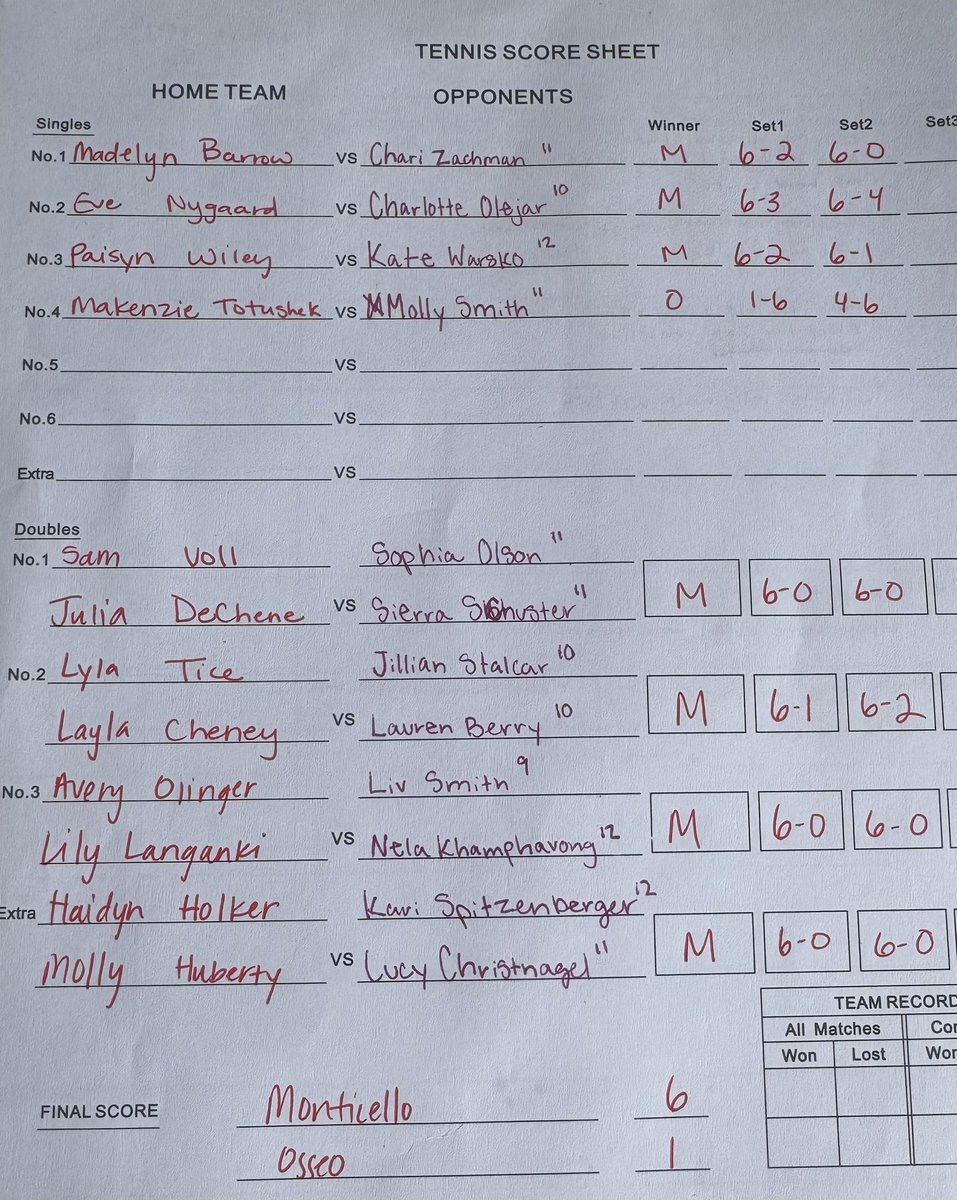 TENNIS SCORE SHEET
HOME TEAM OPPONENTS
Singles Winner Set1 Set2 Set3
No.1 Madelyn Barrow vs Chari Zachman 11 M 6-2 6-0
No.2 Eve Nygaard vs Charlotte Olejar 10 M 6-3 6-4
No.3 Paisyn Wiley vs Kate Warsko 12 M 6-2 6-1
No.4 Makenzie Totushek vs Molly Smith 11 O 1-6 4-6
No.5 vs
No.6 vs
Extra vs
Doubles
No.1 Sam Voll Sophia Olson 11
Julia DeChene vs Sierra Schuster 11 M 6-0 6-0
No.2 Lyla Tice Jillian Stalcar 10
Layla Cheney vs Lauren Berry 10 M 6-1 6-2
No.3 Avery Olinger Liv Smith 9
Lily Langanki vs Nela Khamphavong 12 M 6-0 6-0
Extra Haidyn Holker Kari Spitzenberger 12
Molly Huberty vs Lucy Christnagel 11 M 6-0 6-0
TEAM RECORD
All Matches
Won Lost
FINAL SCORE Monticello 6
Osseo 1